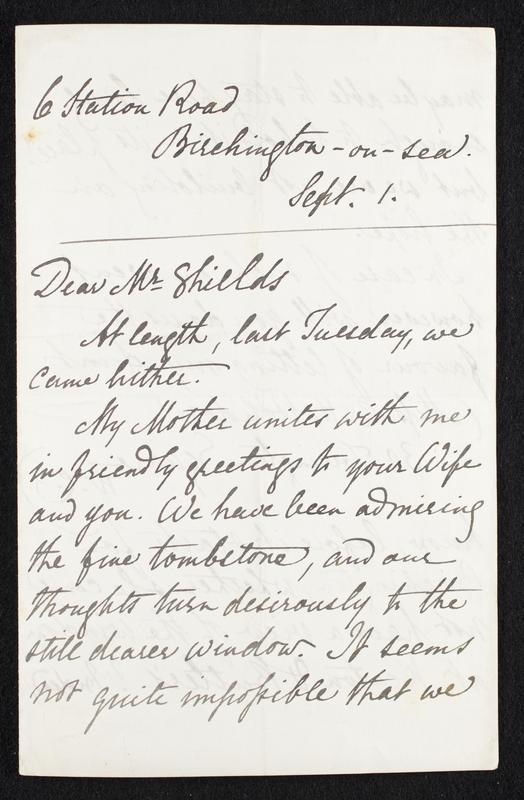 6 Station Road
Birchington-on-sea.
Sept. 1.
Dear Mr. Shields
At length, last Tuesday, we
came hither.
My Mother unites with me
in friendly greetings to your Wife
and you. We have been admiring
the fine tombstone, and our
thoughts turn desirously to the
still dearer window. It seems
not quite impossible that we